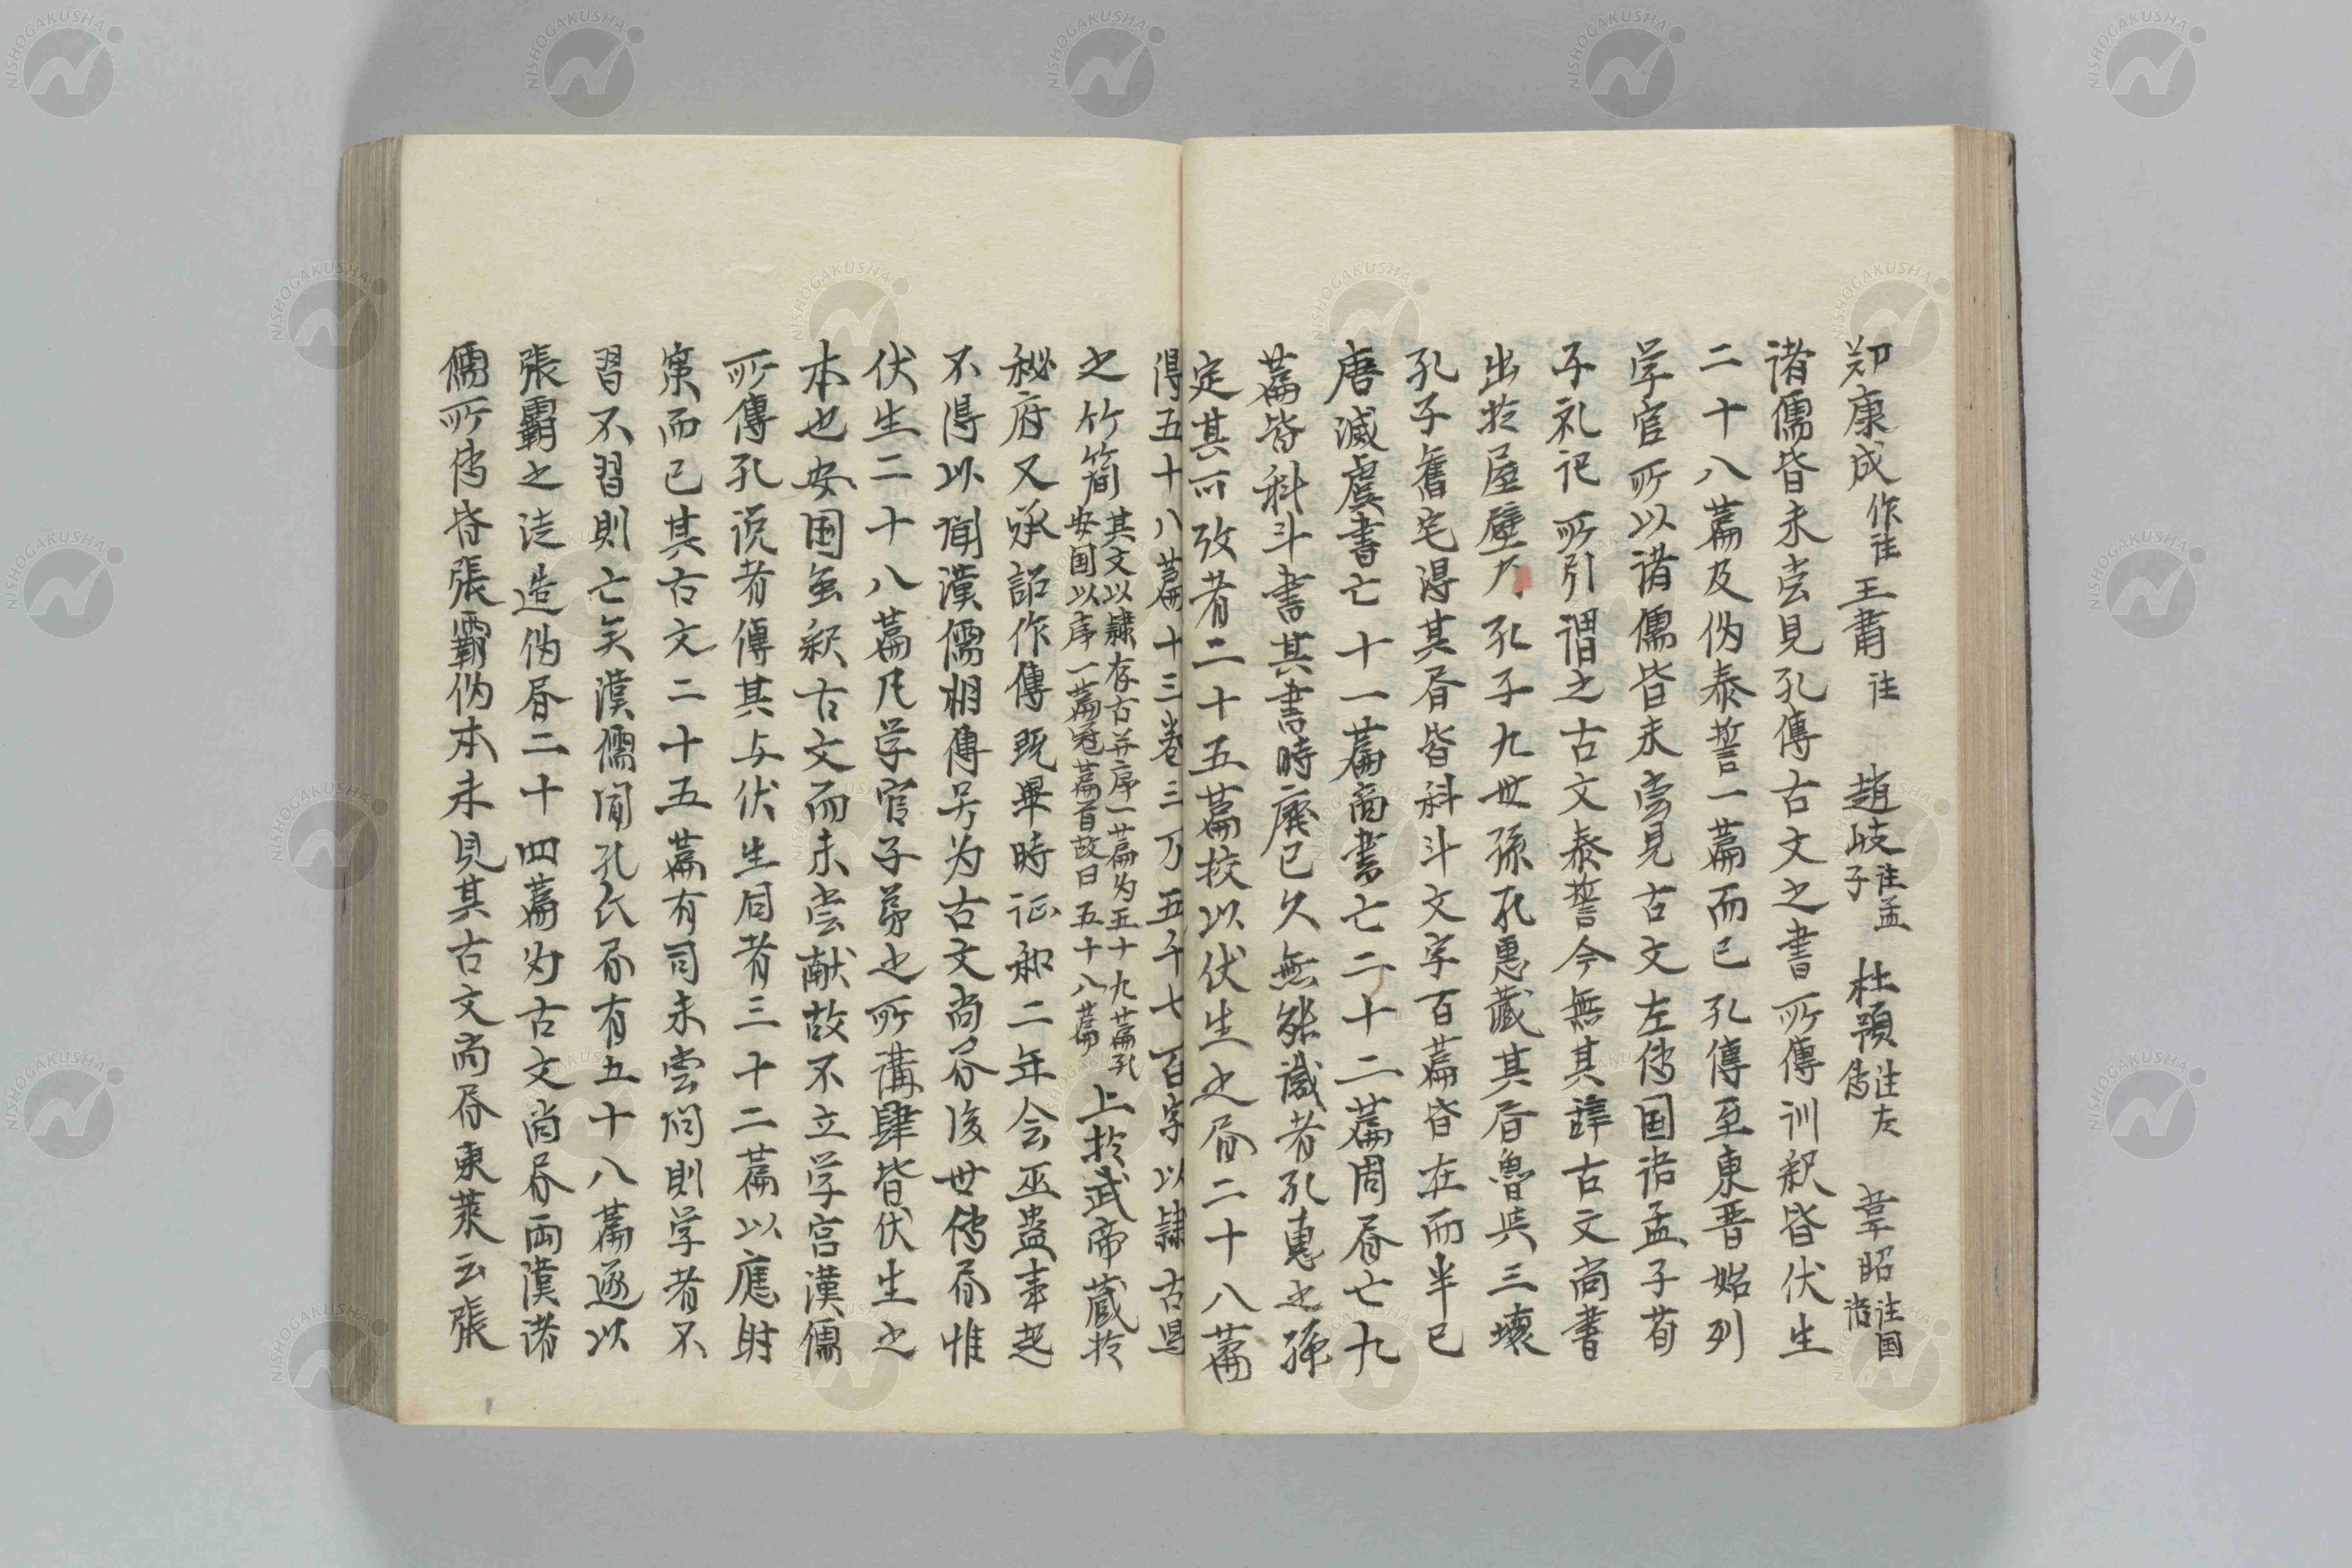 郑康成作注王肅注 趙岐注孟子 杜預注左傳 韋昭注国语
诸儒皆未尝見孔傳古文之書所傳训釈皆伏生
二十八篇及伪泰誓一篇而已孔傳至東晋始列
学官所以诸儒皆未尝見古文左傳国语孟子荀
子礼记所引谓之古文泰誓今無其辞古文尚書
出於屋壁乃孔子九世孫孔惠藏其書魯共三壞
孔子舊宅得其書皆科斗文字百篇皆在而半已
唐滅虞書亡十一篇商書亡二十二篇周書亡九
篇皆科斗書其書時廃已久無能識者孔惠之孫
定其可攷者二十五篇校以伏生之書二十八篇
得五十八篇十三卷三万五千七百字以隷古冩
之竹简其文以隷存古并序一篇为五十九篇孔安国以序一篇冠篇首故曰五十八篇上於武帝藏於
秘府又承詔作傳既畢時征和二年会巫蛊事起
不得以闻漢儒相傳另为古文尚書後世傳書惟
伏生二十八篇凡学官子弟之所講肆皆伏生之
本也安国虽釈古文而未尝献故不立学宫漢儒
所傳孔说者傳其与伏生同者三十二篇以應射
策而已其古文二十五篇有司未尝问則学者不
習不習則亡矣漢儒聞孔氏書有五十八篇遂以
張霸之徒造伪書二十四篇为古文尚書両漢诸
儒所傳皆張霸伪本未見其古文尚書東萊云張
NISHOGAKUSHA